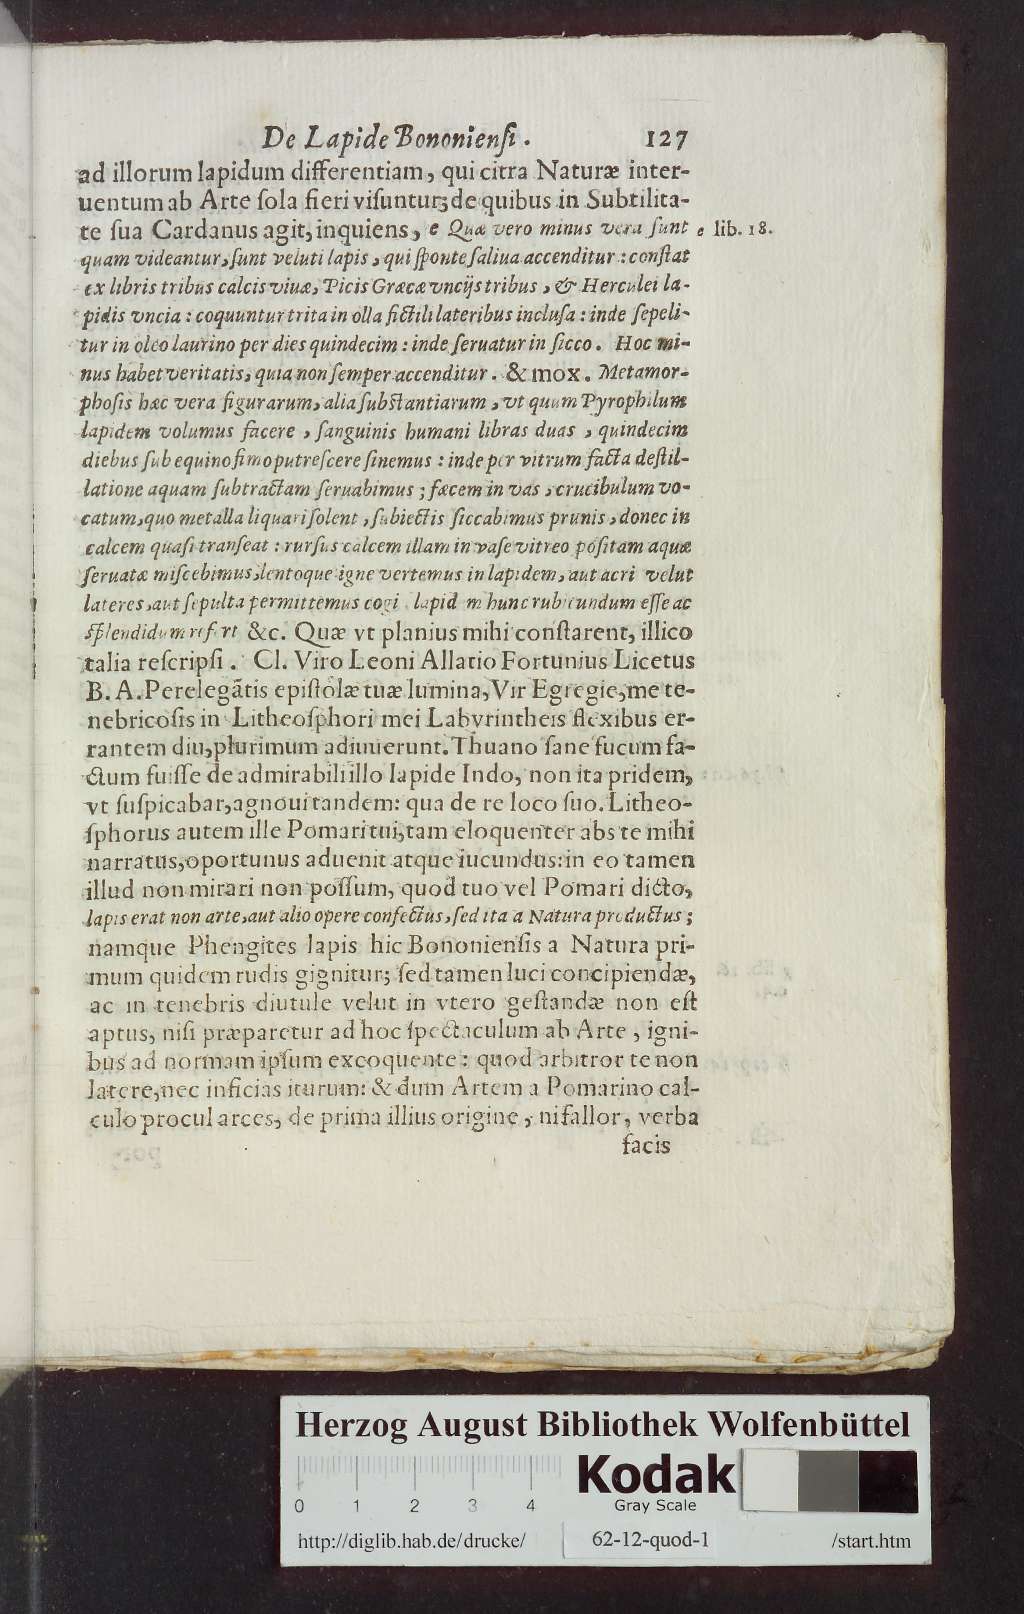 De Lapide Bononiensi. 127
ad illorum lapidum differentiam, qui citra Naturæ inter-
uentum ab Arte sola fieri visuntur; de quibus in Subtilita-
te sua Cardanus agit, inquiens, e Quæ vero minus vera sunt e lib. 18.
quam videantur, sunt veluti lapis, qui sponte saliua accenditur: constat
ex libris tribus calcis viuæ, Picis Græcæ vncijs tribus, & Herculei la-
pidis vncia: coquuntur trita in olla fictili lateribus inclusa: inde sepeli-
tur in oleo laurino per dies quindecim: inde seruatur in sicco. Hoc mi-
nus habet veritatis, quia non semper accenditur. & mox. Metamor-
phosis hæc vera figurarum, alia substantiarum, vt quum Pyrophilum
lapidem volumus facere, sanguinis humani libras duas, quindecim
diebus sub equino fimo putrescere sinemus: inde per vitrum facta destil-
latione aquam subtractam seruabimus; fæcem in vas, crucibulum vo-
catum, quo metalla liquari solent, subiectis siccabimus prunis, donec in
calcem quasi transeat: rursus calcem illam in vase vitreo positam aquæ
seruatæ miscebimus, lentoque igne vertemus in lapidem, aut acri velut
lateres, aut sepulta permittemus cogi lapid m hunc rubicundum esse ac
splendidum refert &c. Quæ vt planius mihi constarent, illico
talia rescripsi. Cl. Viro Leoni Allatio Fortunius Licetus
B. A. Perelegātis epistolæ tuæ lumina, Vir Egregie, me te-
nebricosis in Litheosphori mei Labyrintheis flexibus er-
rantem diu, plurimum adiuuerunt. Thuano sane fucum fa-
ctum fuisse de admirabili illo lapide Indo, non ita pridem,
vt suspicabar, agnoui tandem: qua de re loco suo. Litheo-
sphorus autem ille Pomari tui, tam eloquenter abs te mihi
narratus, oportunus aduenit atque iucundus: in eo tamen
illud non mirari non possum, quod tuo vel Pomari dicto,
lapis erat non arte, aut alio opere confectus, sed ita a Natura productus;
namque Phengites lapis hic Bononiensis a Natura pri-
mum quidem rudis gignitur; sed tamen luci concipiendæ,
ac in tenebris diutule velut in vtero gestandæ non est
aptus, nisi præparetur ad hoc spectaculum ab Arte, igni-
bus ad normam ipsum excoquente: quod arbitror te non
latere, nec inficias iturum: & dum Artem a Pomarino cal-
culo procul arces, de prima illius origine, ni fallor, verba
facis
Herzog August Bibliothek Wolfenbüttel
Kodak
Gray Scale
0 1 2 3 4
http://diglib.hab.de/drucke/ 62-12-quod-1 /start.htm